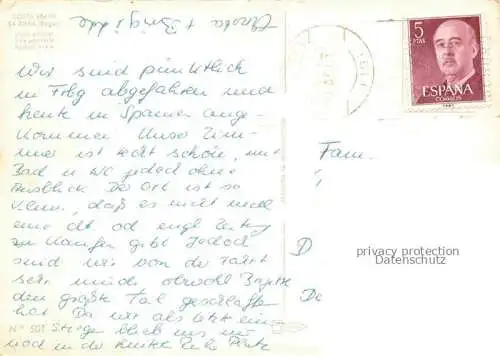 COSTA BRAVA
Wir sind pünktlich
in Frbg abgefahren und
heute in Spanien ange-
kommen. Unser Zim-
mer ist recht schön, mit
Bad u WC jedoch ohne
Ausblick Der Ort ist so
klein, daß es nicht mal
eine dt. od engl Zeitung
zu kaufen gibt Jedoch
sind wir von der Fahrt
sehr müde obwohl Brigitte
den größte Teil geschlafen
hat Da wir als letzt ein-
stiegen blieb uns nur
noch in der hinter Platz
Nº 501
+ Brigitte
5
PTAS
ESPAÑA
CORREOS
Fam.
D
privacy protection
Datenschutz
De